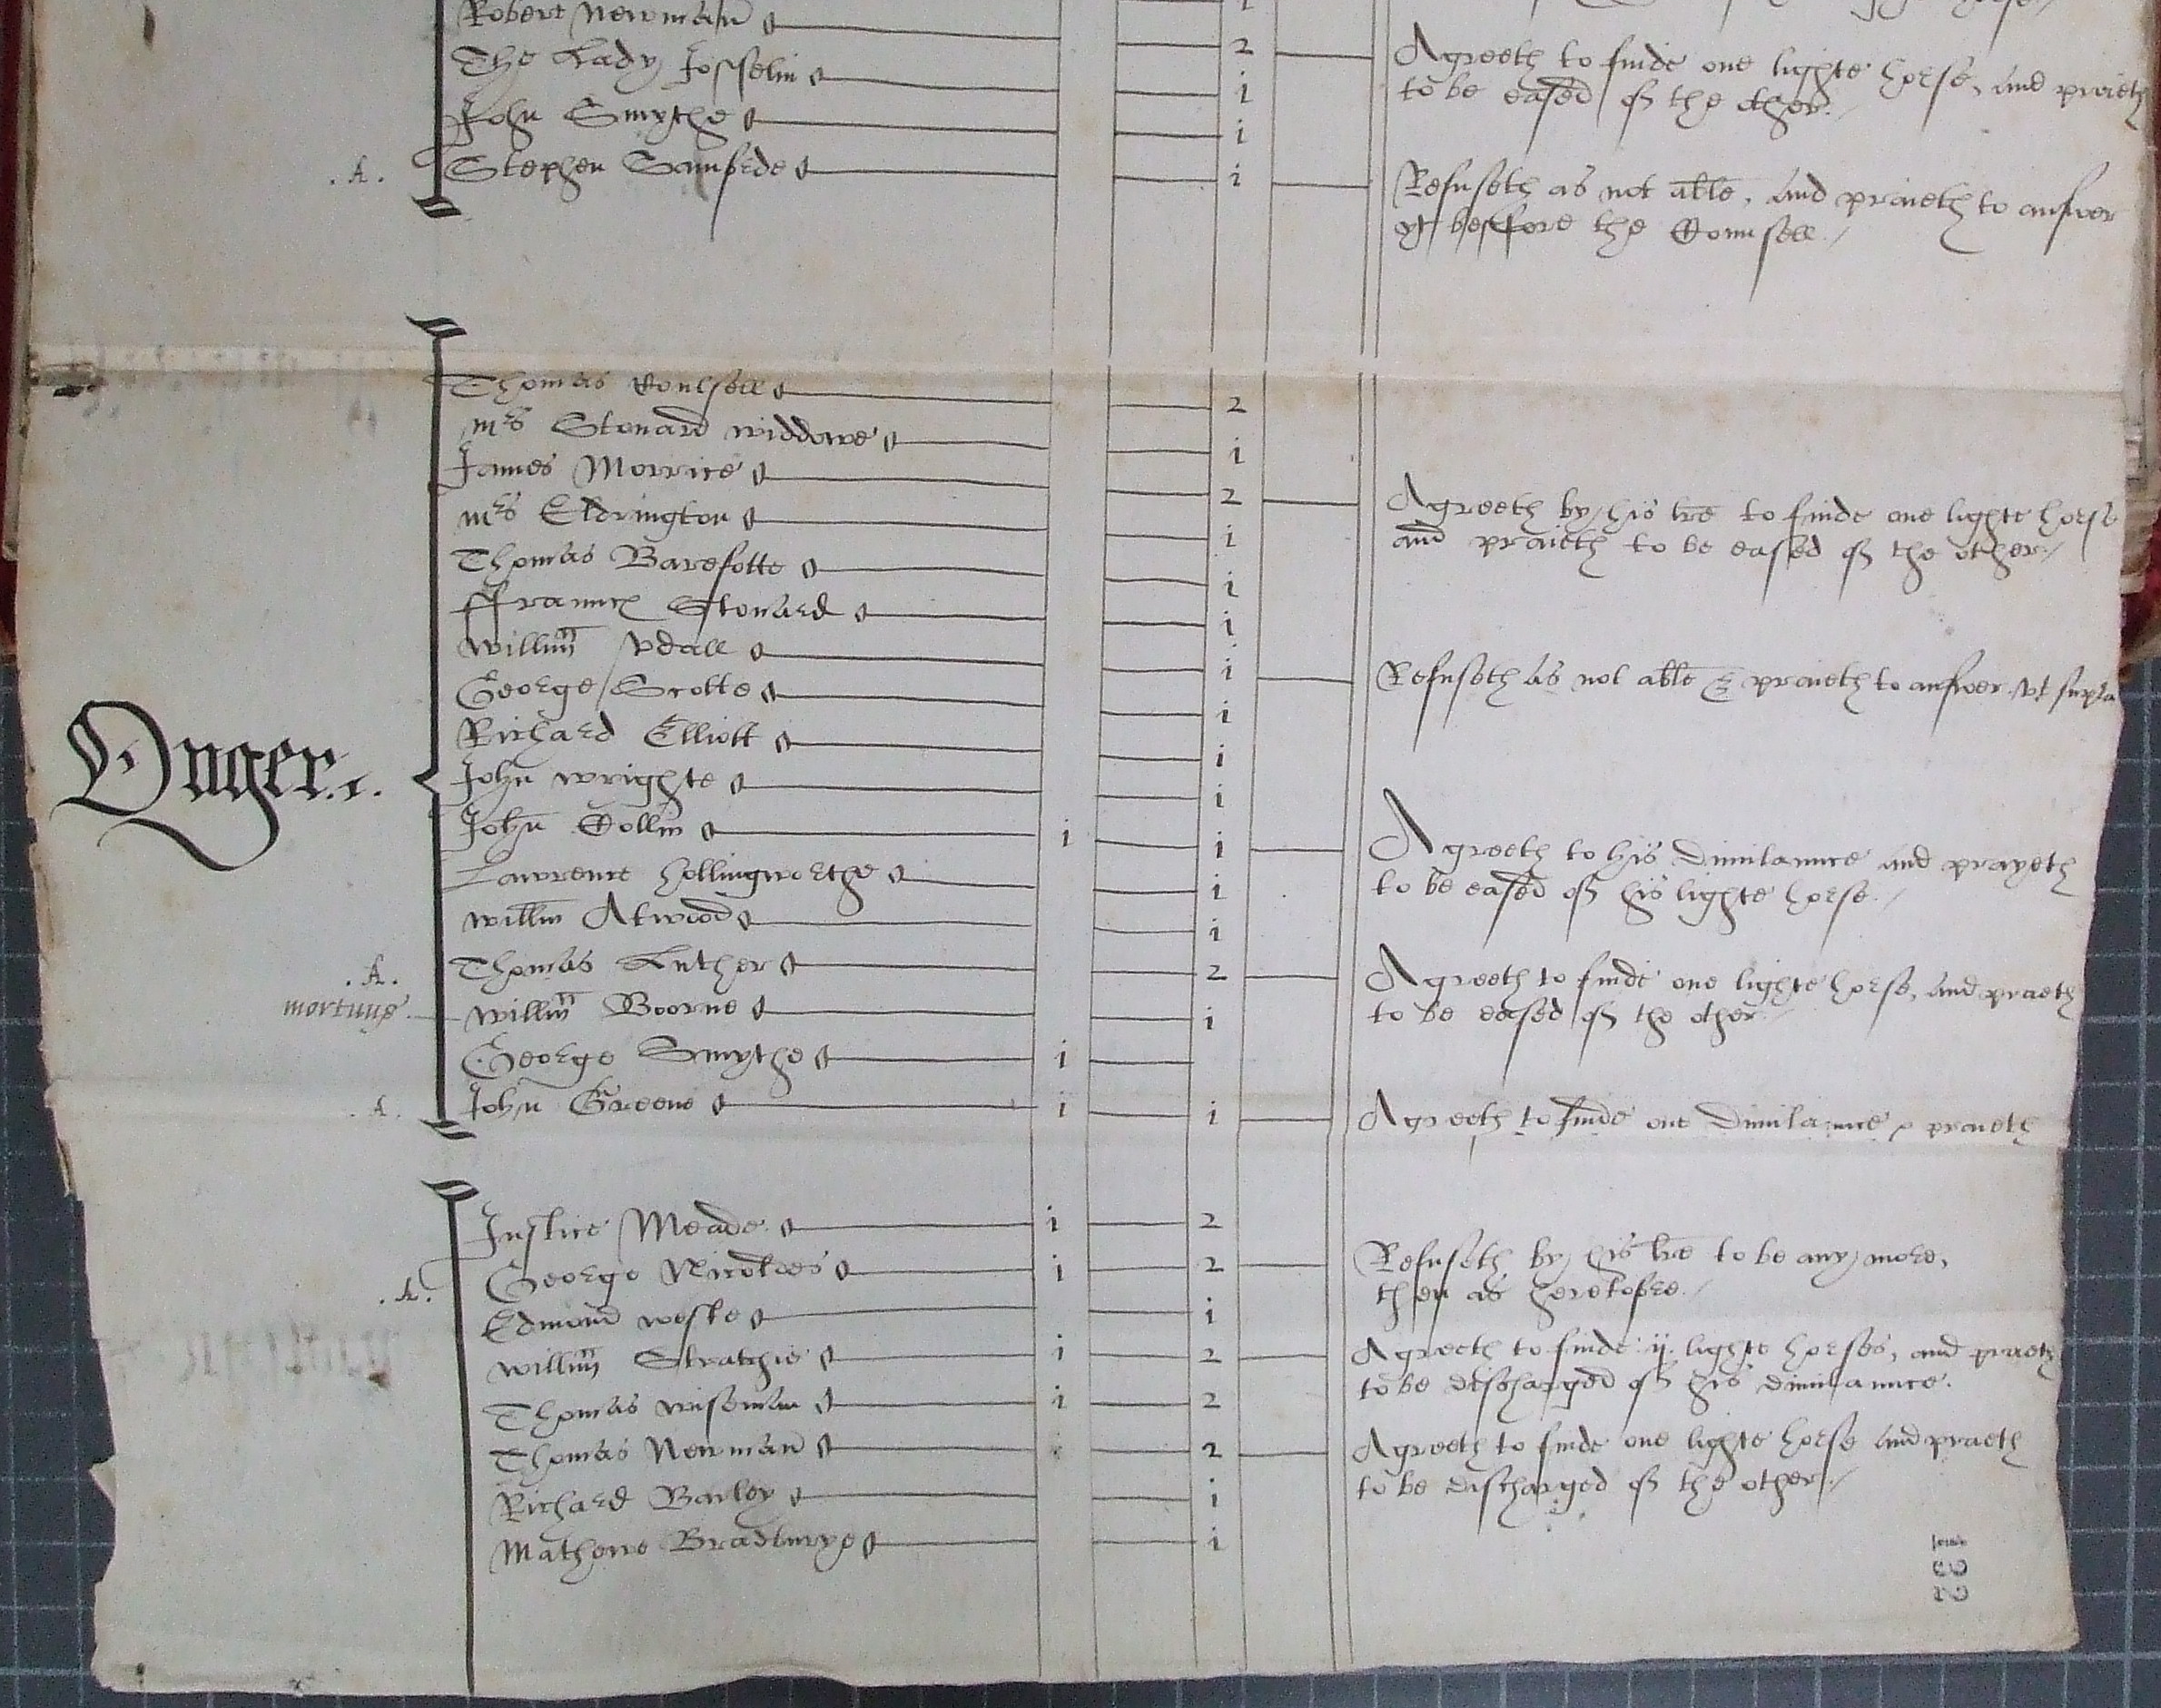 Robert Newman i
The Lady Josselin 2 Agreeth to finde one lighte horse, and praieth
to be eased of the other./
John Smythe i
.A. Stephen Bamforde i Refuseth as not able, and praieth to answer
yt beffore the Counsell./
Thomas Counsell 2
mrs Stonard widdowe i
James Morrice 2 Agreeth by his lre to finde one lighte horse
and praieth to be eased of the other./
mrs Eldrington i
Thomas Barefotte i
ffrauncs Stonard i
Willm Vdall i Refuseth as not able & praieth to answer vt supra
George Scotte i
Richard Elliott i
Onger.
John Wrighte i
John Collin i i Agreeth to his Dimilaunce and prayeth
to be eased of his lighte horse./
Lawrence Hollingworthe i
Willm Atwood i
.A. Thomas Luther 2 Agreeth to finde one lighte horse, and praeth
to be eased of the other./
mortuus Willm Boorne i
George Smythe i
.A. John Greene i i Agreeth to finde one Dimilaunce & praieth
Justice Meade i 2
.A. George Nicolles i 2 Refuseth by his lre to be any more,
then as heretofore./
Edmond Weste i
Willm Stratchie i 2 Agreeth to finde ij lighte horses, and praeth
to be discharged of his dimilaunce.
Thomas Wiseman i 2
Thomas Newman 2 Agreeth to finde one lighte horse and praeth
to be discharged of the other./
Richard Barley i
Mathewe Bradburye i
132